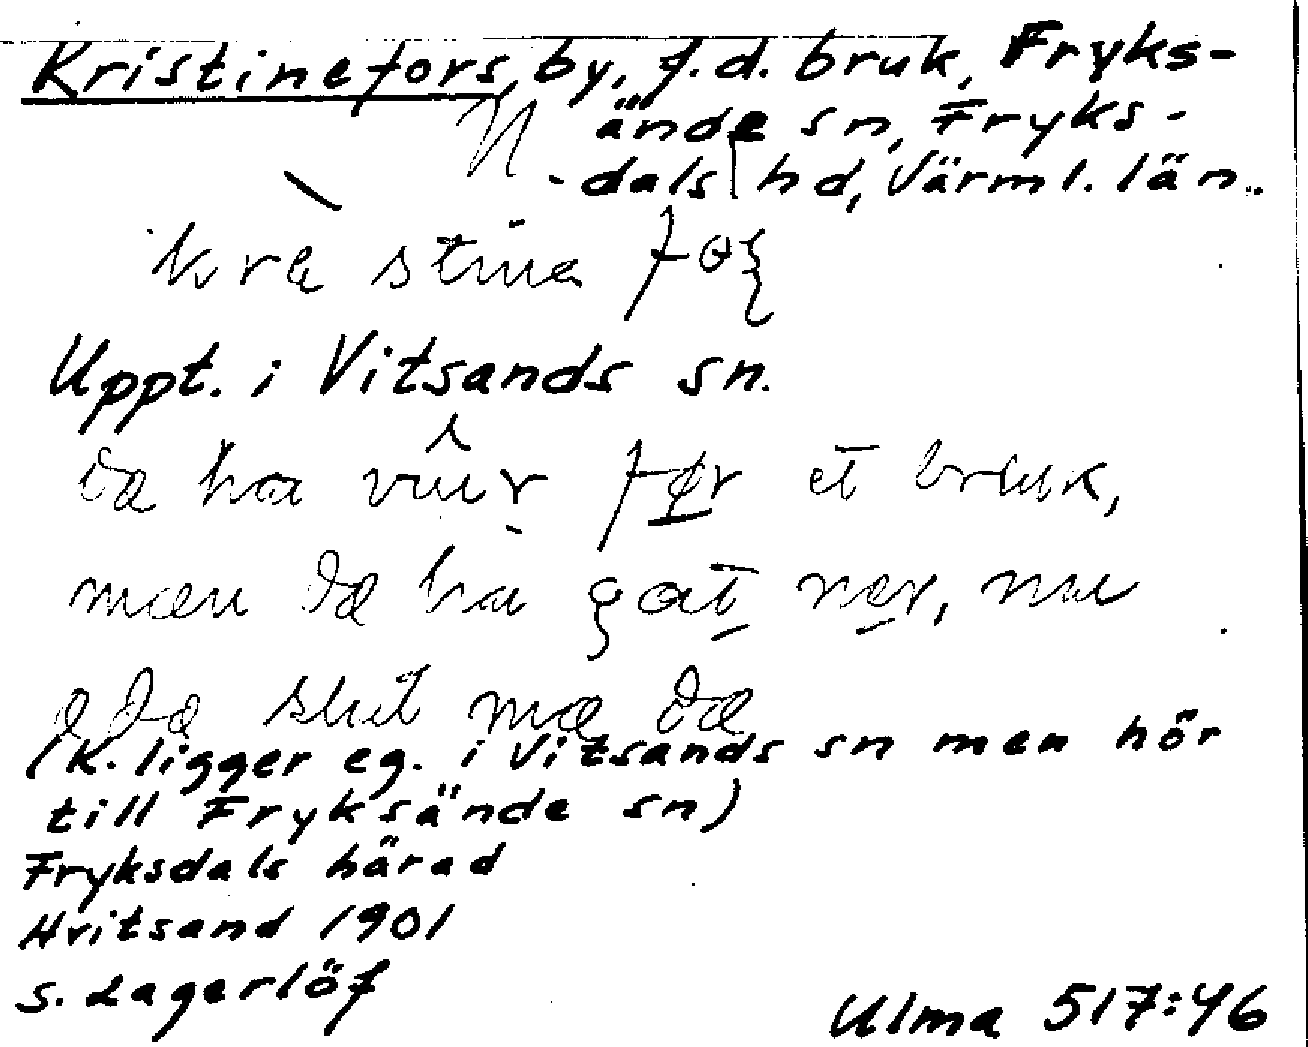 Kristinefors, by, f.d. bruk, Fryks-
N ände sn, Fryks-
-dals hd, Värml. län.
kræ stina
Uppt. i Vitsands sn.
dæ ha før et bruk,
mæn dæ ha gat nær, nu
dæ slut mæ dæ
(K. ligger eg. i Vitsands sn men hör
till Fryksände sn)
Fryksdals härad
Hvitsand 1901
S. Lagerlöf
Ulma 517:46